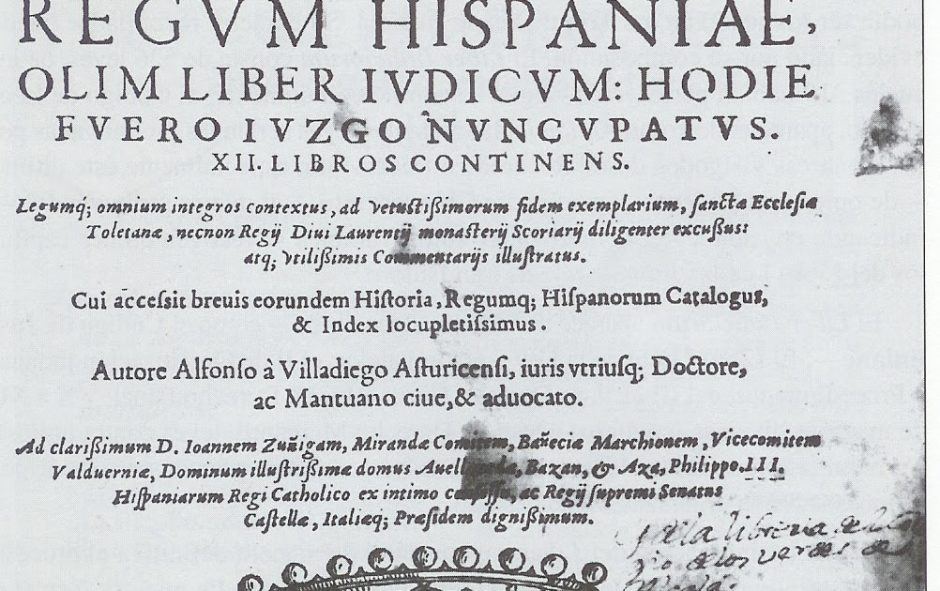 REGVM HISPANIAE,
OLIM LIBER IVDICVM: HODIE
FVERO IVZGO NVNCVPATVS.
XII. LIBROS CONTINENS.
Legumq; omnium integros contextus, ad vetustißimorum fidem exemplarium, sanctæ Ecclesiæ
Toletanæ, necnon Regij Diui Laurentij monasterij Scoriarij diligenter excußus:
atq; vtilißimis Commentarijs illustratus.
Cui accessit breuis eorundem Historia, Regumq; Hispanorum Catalogus,
& Index locupletissimus.
Autore Alfonso à Villadiego Asturicensi, iuris vtriusq; Doctore,
ac Mantuano ciue, & aduocato.
Ad clarißimum D. Ioannem Zuñigam, Mirandæ Comitem, Bañeciæ Marchionem, Vicecomitem
Valduerniæ, Dominum illustrißimæ domus Auellaneda, Bazan, & Aza, Philippo.III.
Hispaniarum Regi Catholico ex intimo ac Regij supremi Senatus
Castellæ, Italiæq; Præsidem dignißimum.
la libreria
de los verdes de